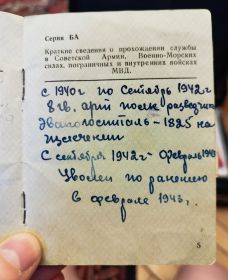 Серия БА
Краткие сведения о прохождении службы
в Советской Армии, Военно-Морских
силах, пограничных и внутренних войсках
МВД.
с 1940г по Сентябрь 1942г
8 гв. арт полк разведчик
Эвакогоспиталь – 1825 на
излечении
С сентября 1942г – февраль 1943
Уволен по ранению
в феврале 1943г.
5